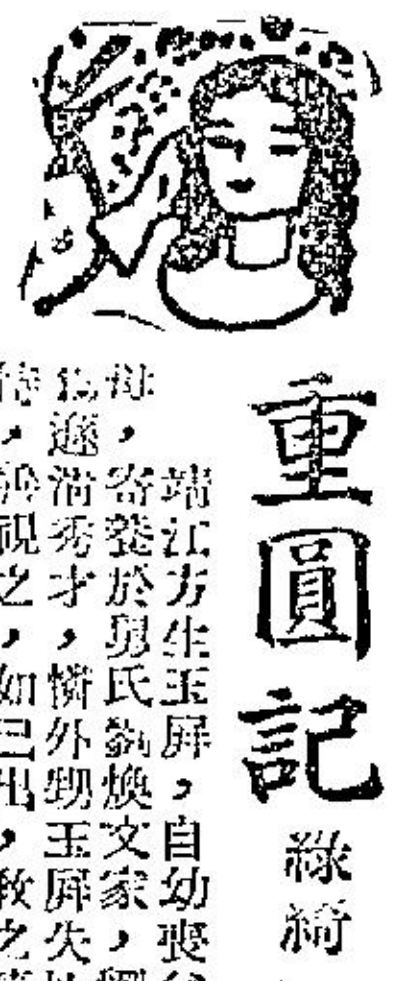 重圓記
綠綺
端江方生玉屏，自幼喪
母，寄養於舅氏煥文家，
為，秀才，憐外甥玉屏失
，視之，如己出，教之